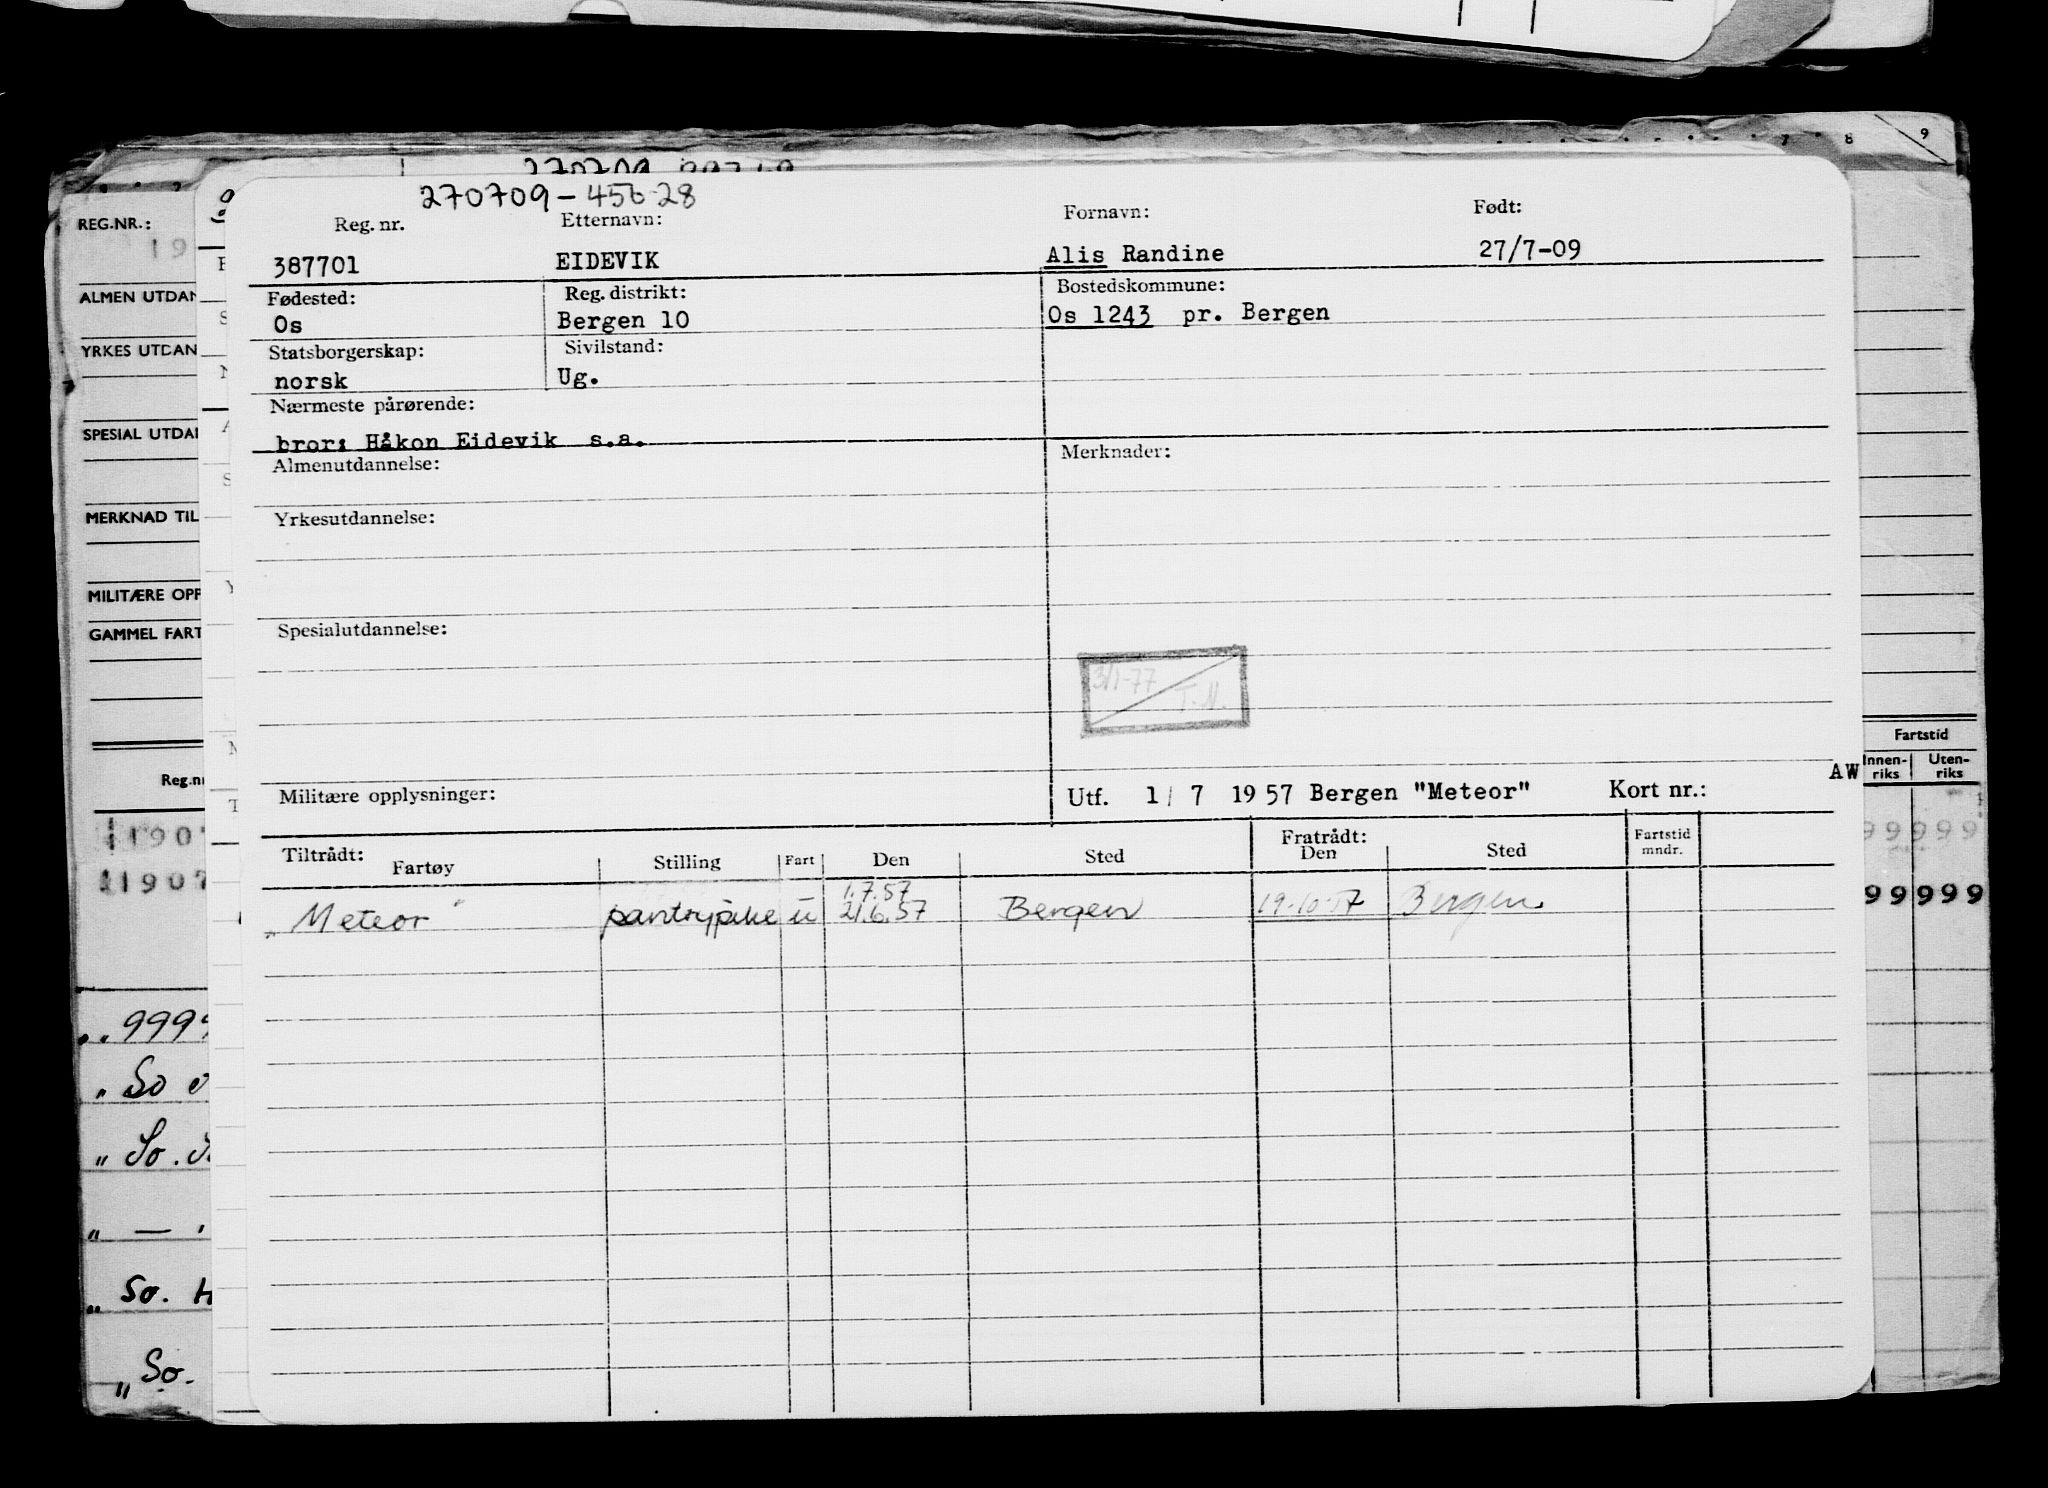 9
8
7
270709
REG.NR.:
19
ALMEN UTDAN
YRKES UTDAN
SPESIAL UTDAN
MERKNAD TIL
MILITÆRE OPP
GAMMEL FART
Reg.nr
1190
11907
„ 9999
„ So
„ So.
„ — „
„ So. H
„ So.
270709-456 28
Reg. nr. Etternavn: Fornavn: Født:
387701 EIDEVIK Alis Randine 27/7-09
Fødested: Reg. distrikt: Bostedskommune:
Os Bergen 10 Os 1243 pr. Bergen
Statsborgerskap: Sivilstand:
norsk Ug.
Nærmeste pårørende:
bror: Håkon Eidevik s.a.
Almenutdannelse: Merknader:
Yrkesutdannelse:
Spesialutdannelse:
3/1-77
T.N.
Militære opplysninger: Utf. 1/7 1957 Bergen "Meteor" Kort nr.: AW
Tiltrådt: Fratrådt:
Fartøy Stilling Fart Den Sted Den Sted Fartstid mndr.
1.7.57
"Meteor" pantrypike u 21.6.57 Bergen 19-10-57 Bergen
Fartstid
Innen-riks Uten-riks
99 999
99 999